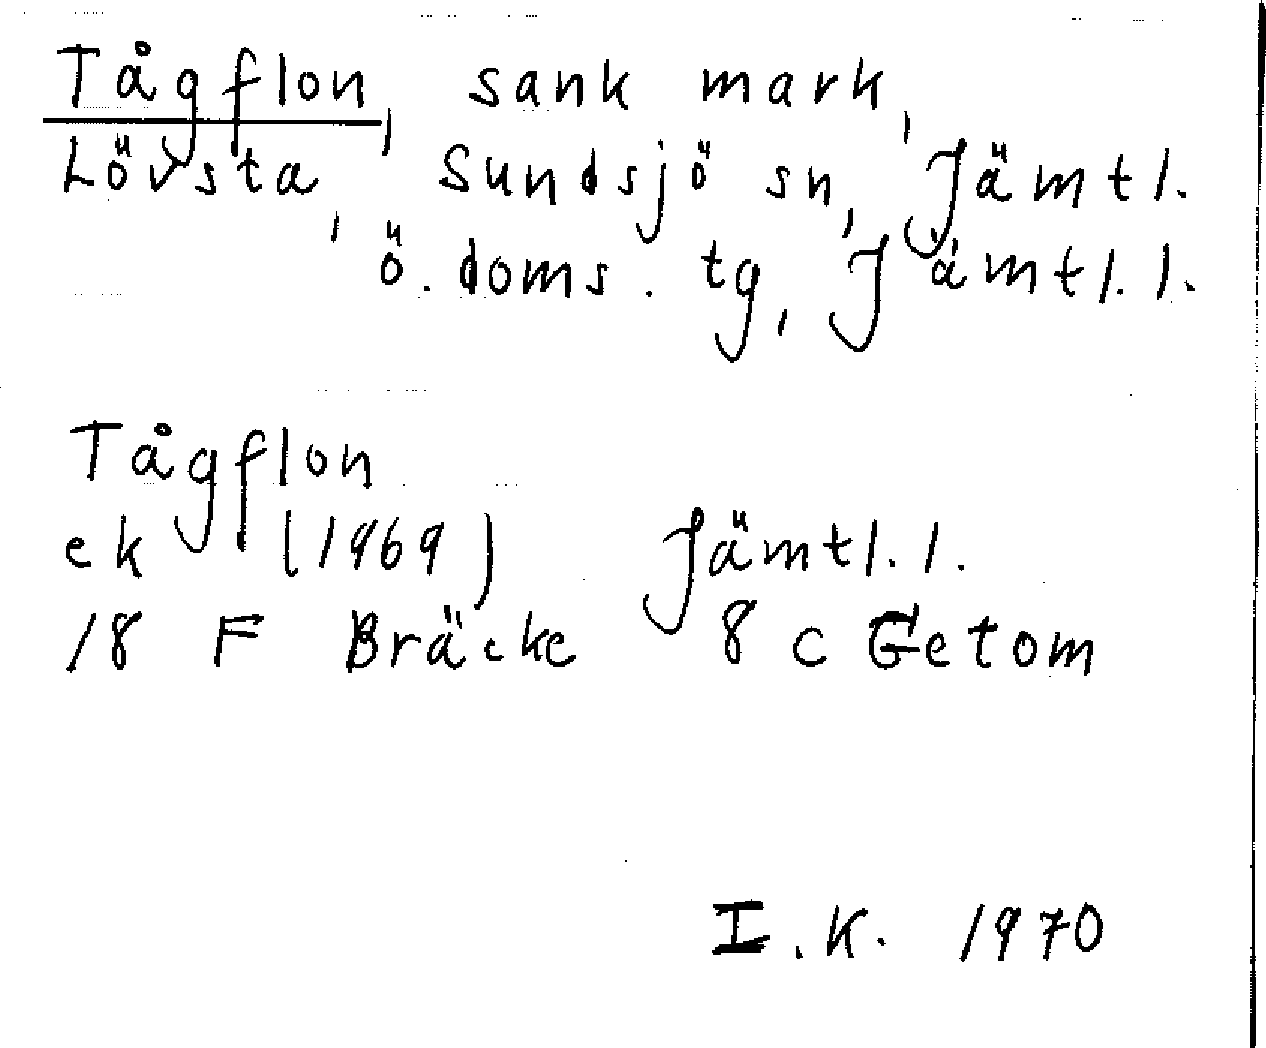 Tågflon, sank mark,
Lövsta, Sundsjö sn, Jämtl.
ö. doms. tg, Jämtl. l.
Tågflon
ek (1969) Jämtl. l.
18 F Bräcke 8 c Getom
I. K. 1970